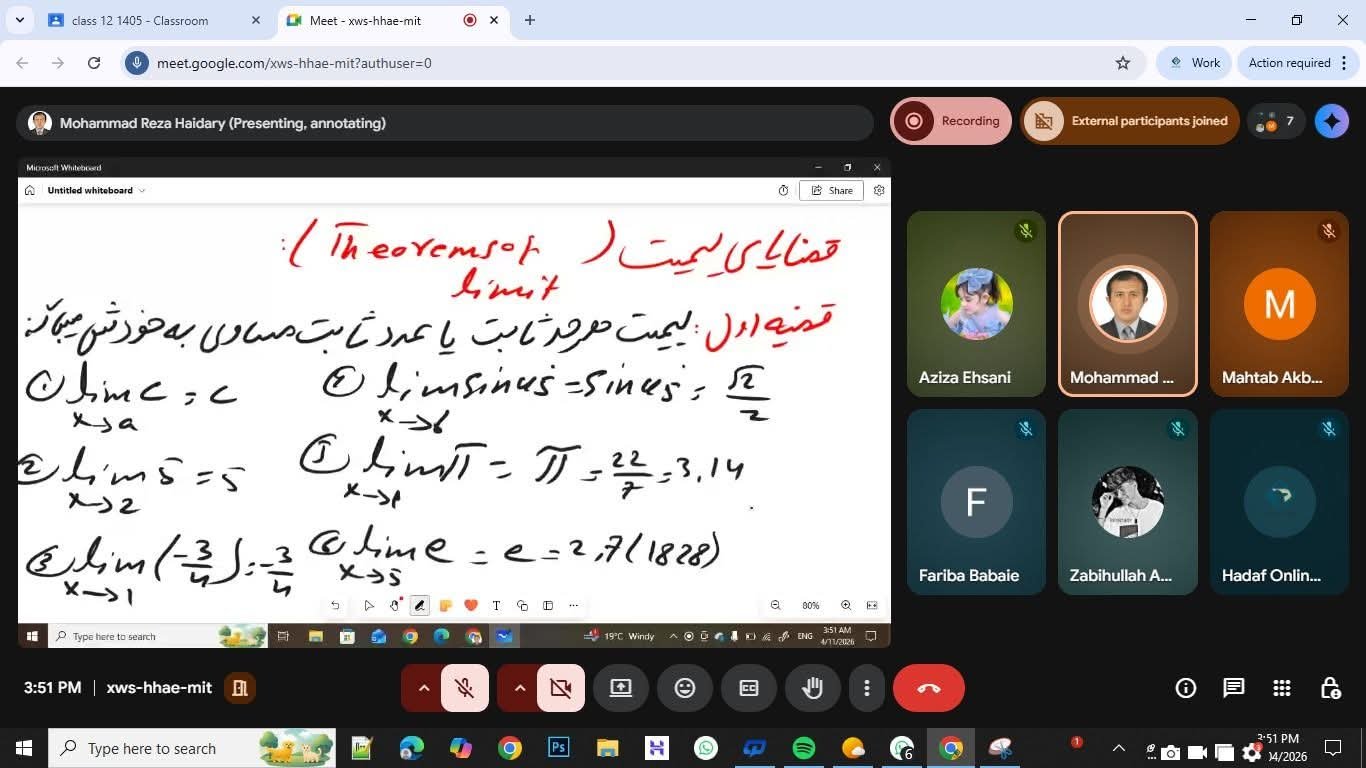 class 12 1405 - Classroom
Meet - xws-hhae-mit
meet.google.com/xws-hhae-mit?authuser=0
Work
Action required
Mohammad Reza Haidary (Presenting, annotating)
Recording
External participants joined
7
Microsoft Whiteboard
Untitled whiteboard
Share
قضایای لیمیت (Theorems of limit):
قضیه اول: لیمیت هر حد ثابت یا عدد ثابت مساوی به خودش میباشد:
① lim c = c
x→a
② lim 5 = 5
x→2
③ lim (-3/4) = -3/4
x→1
④ lim sin45 = sin45 = √2/2
x→6
⑤ lim π = π = 22/7 = 3.14
⑥ lim e = e = 2,7(1828)
x→5
80%
Type here to search
19°C Windy
ENG
3:51 AM
4/11/2026
Aziza Ehsani
Mohammad ...
M
Mahtab Akb...
F
Fariba Babaie
Zabihullah A...
Hadaf Onlin...
3:51 PM | xws-hhae-mit
Type here to search
6
1
3:51 PM
04/2026